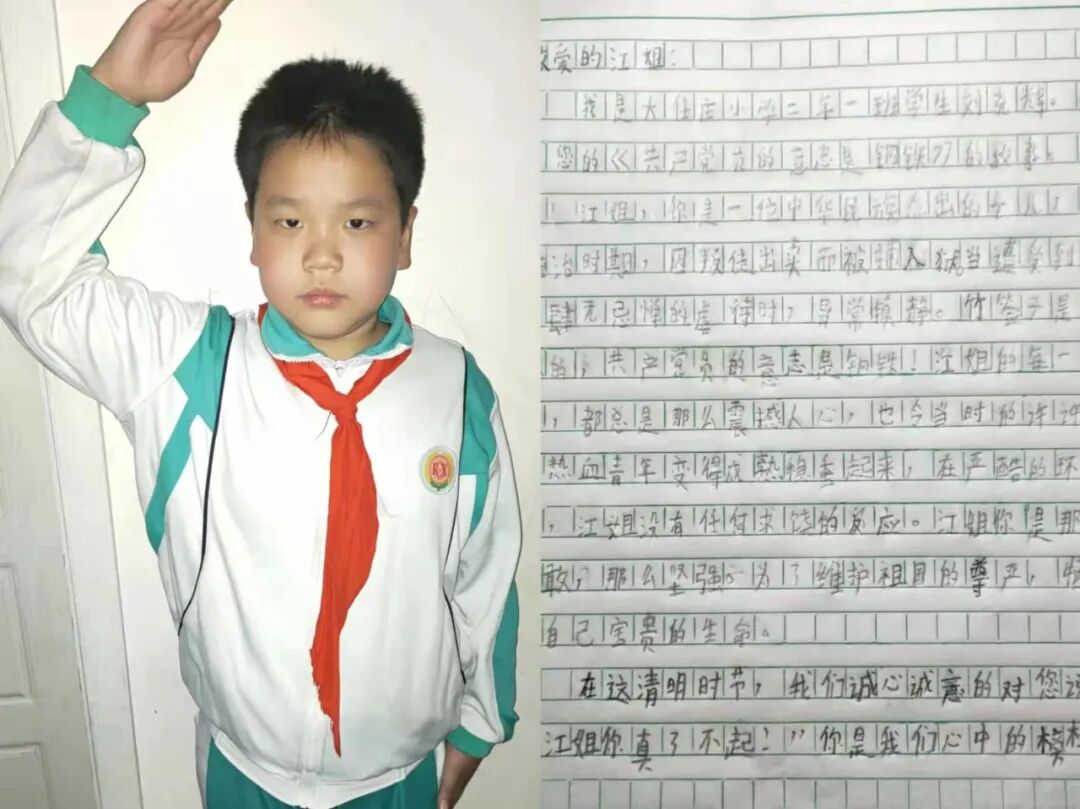 爱的江姐：
我是大任庄小学二年一班学生刘克辉。
您的《共产党员的意志是钢铁》的故事。
，江姐，你是一位中华民族杰出的女儿，
治时期，因叛徒出卖而被捕入狱当遭受到
肆无忌惮的虐待时，异常镇静。竹签子是
的，共产党员的意志是钢铁！江姐的每一
，都总是那么震撼人心，也令当时的许许
热血青年变得成熟稳重起来，在严酷的环
，江姐没有任何求饶的反应。江姐你是那
敢，那么坚强，为了维护祖国的尊严，
自己宝贵的生命。
在这清明时节，我们诚心诚意的对您
江姐你真了不起！”你是我们心中的